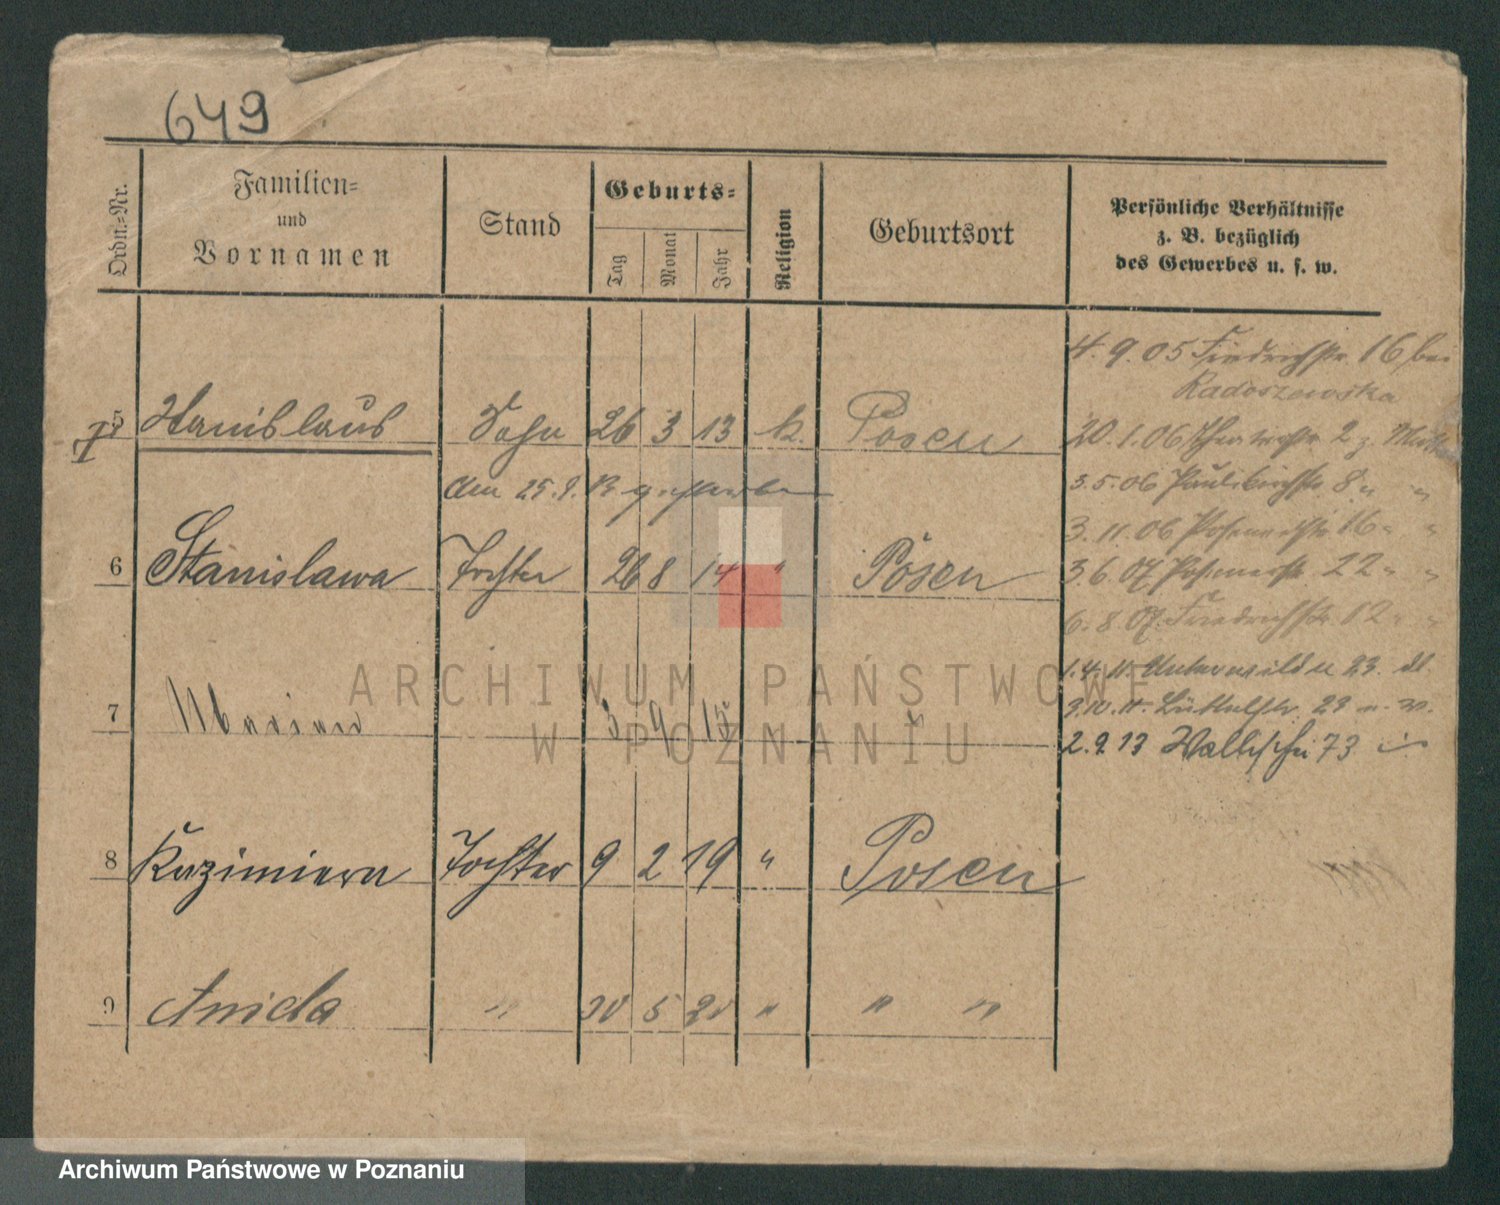 649
Ordn.-Nr.
Familien-
und
Vornamen
Stand
Geburts-
Tag
Monat
Jahr
Religion
Geburtsort
Persönliche Verhältnisse
z. B. bezüglich
des Gewerbes u. s. w.
5 Stanislaus Sohn 26 3 13 k. Posen
am 25.9.13 gestorben
6 Stanislawa Tochter 26 8 14 " Posen
7 Marian 3 9 15
8 Kazimiera Tochter 9 2 19 " Posen
9 Aniela " 30 5 20 " " "
4.9.05 Friedrichstr. 16 bei
Radoszewska
20.1.06 2 z.
3.5.06 Paulikirchstr 8 " "
3.11.06 16 " "
3.6.07 22 " "
6.8.07 Friedrichstr. 12 " "
1.4.11 Unterwilda 23
9.10.11 29
2.9.13 Wallischei 73
ARCHIWUM PAŃSTWOWE
W POZNANIU
Archiwum Państwowe w Poznaniu